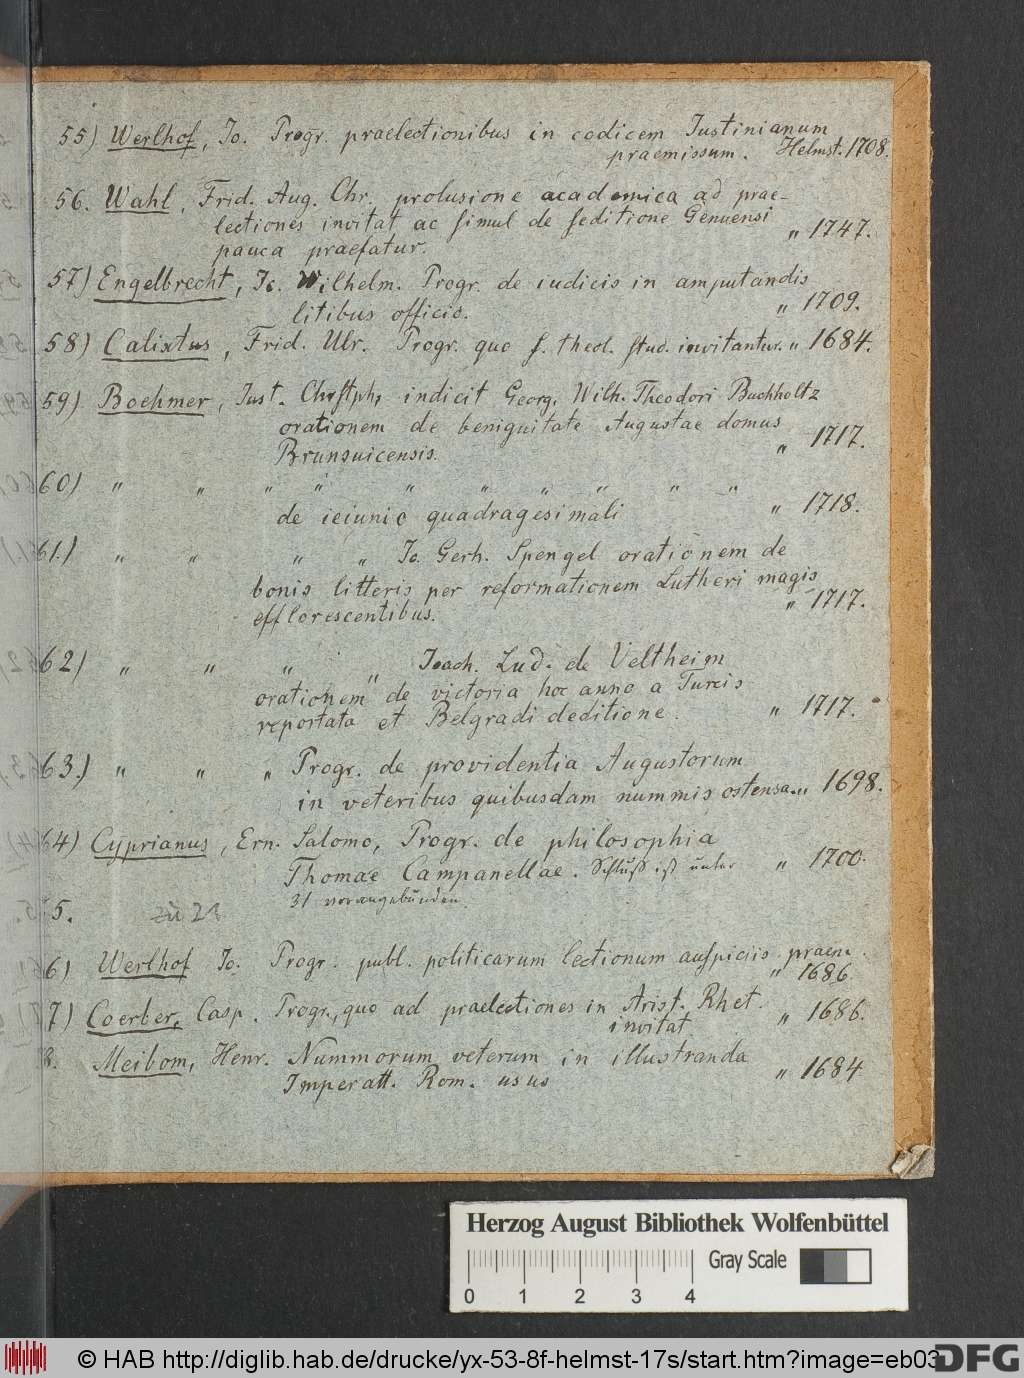 55) Werlhof, Jo. Progr. praelectionibus in codicem Justinianum
praemissum. Helmst. 1708.
56. Wahl, Frid. Aug. Chr. prolusione academica ad prae-
lectiones invitat ac simul de seditione Genuensi
pauca praefatur. " 1747.
57) Engelbrecht, Jo. Wilhelm. Progr. de iudicis in amputandis
litibus officio. " 1709.
58) Calixtus, Frid. Ulr. Progr. quo s. theol. stud. invitantur. " 1684.
59) Boehmer, Just. Chrstph, indicit Georg. Wilh. Theodori Buchholtz
orationem de benignitate Augustae domus
Brunsuicensis. " 1717.
60) " " " " " " " " " "
de ieiunio quadragesimali " 1718.
61.) " " " " Jo. Gerh. Spengel orationem de
bonis litteris per reformationem Lutheri magis
efflorescentibus. " 1717.
62) " " " " Joach. Lud. de Veltheim
orationem de victoria hoc anno a Turcis
reportata et Belgradi deditione. " 1717.
63.) " " " Progr. de providentia Augustorum
in veteribus quibusdam nummis ostensa. " 1698.
64) Cyprianus, Ern. Salomo, Progr. de philosophia
Thomae Campanellae. Schluß ist unter " 1700.
31 vorangebunden.
5. zu 23
6) Werlhof Jo. Progr. publ. politicarum lectionum auspiciis praem.
" 1686.
7) Coerber, Casp. Progr., quo ad praelectiones in Arist. Rhet.
invitat " 1686.
8. Meibom, Henr. Nummorum veterum in illustranda
Imperatt. Rom. usus " 1684
Herzog August Bibliothek Wolfenbüttel
Gray Scale
0 1 2 3 4
© HAB http://diglib.hab.de/drucke/yx-53-8f-helmst-17s/start.htm?image=eb03
DFG